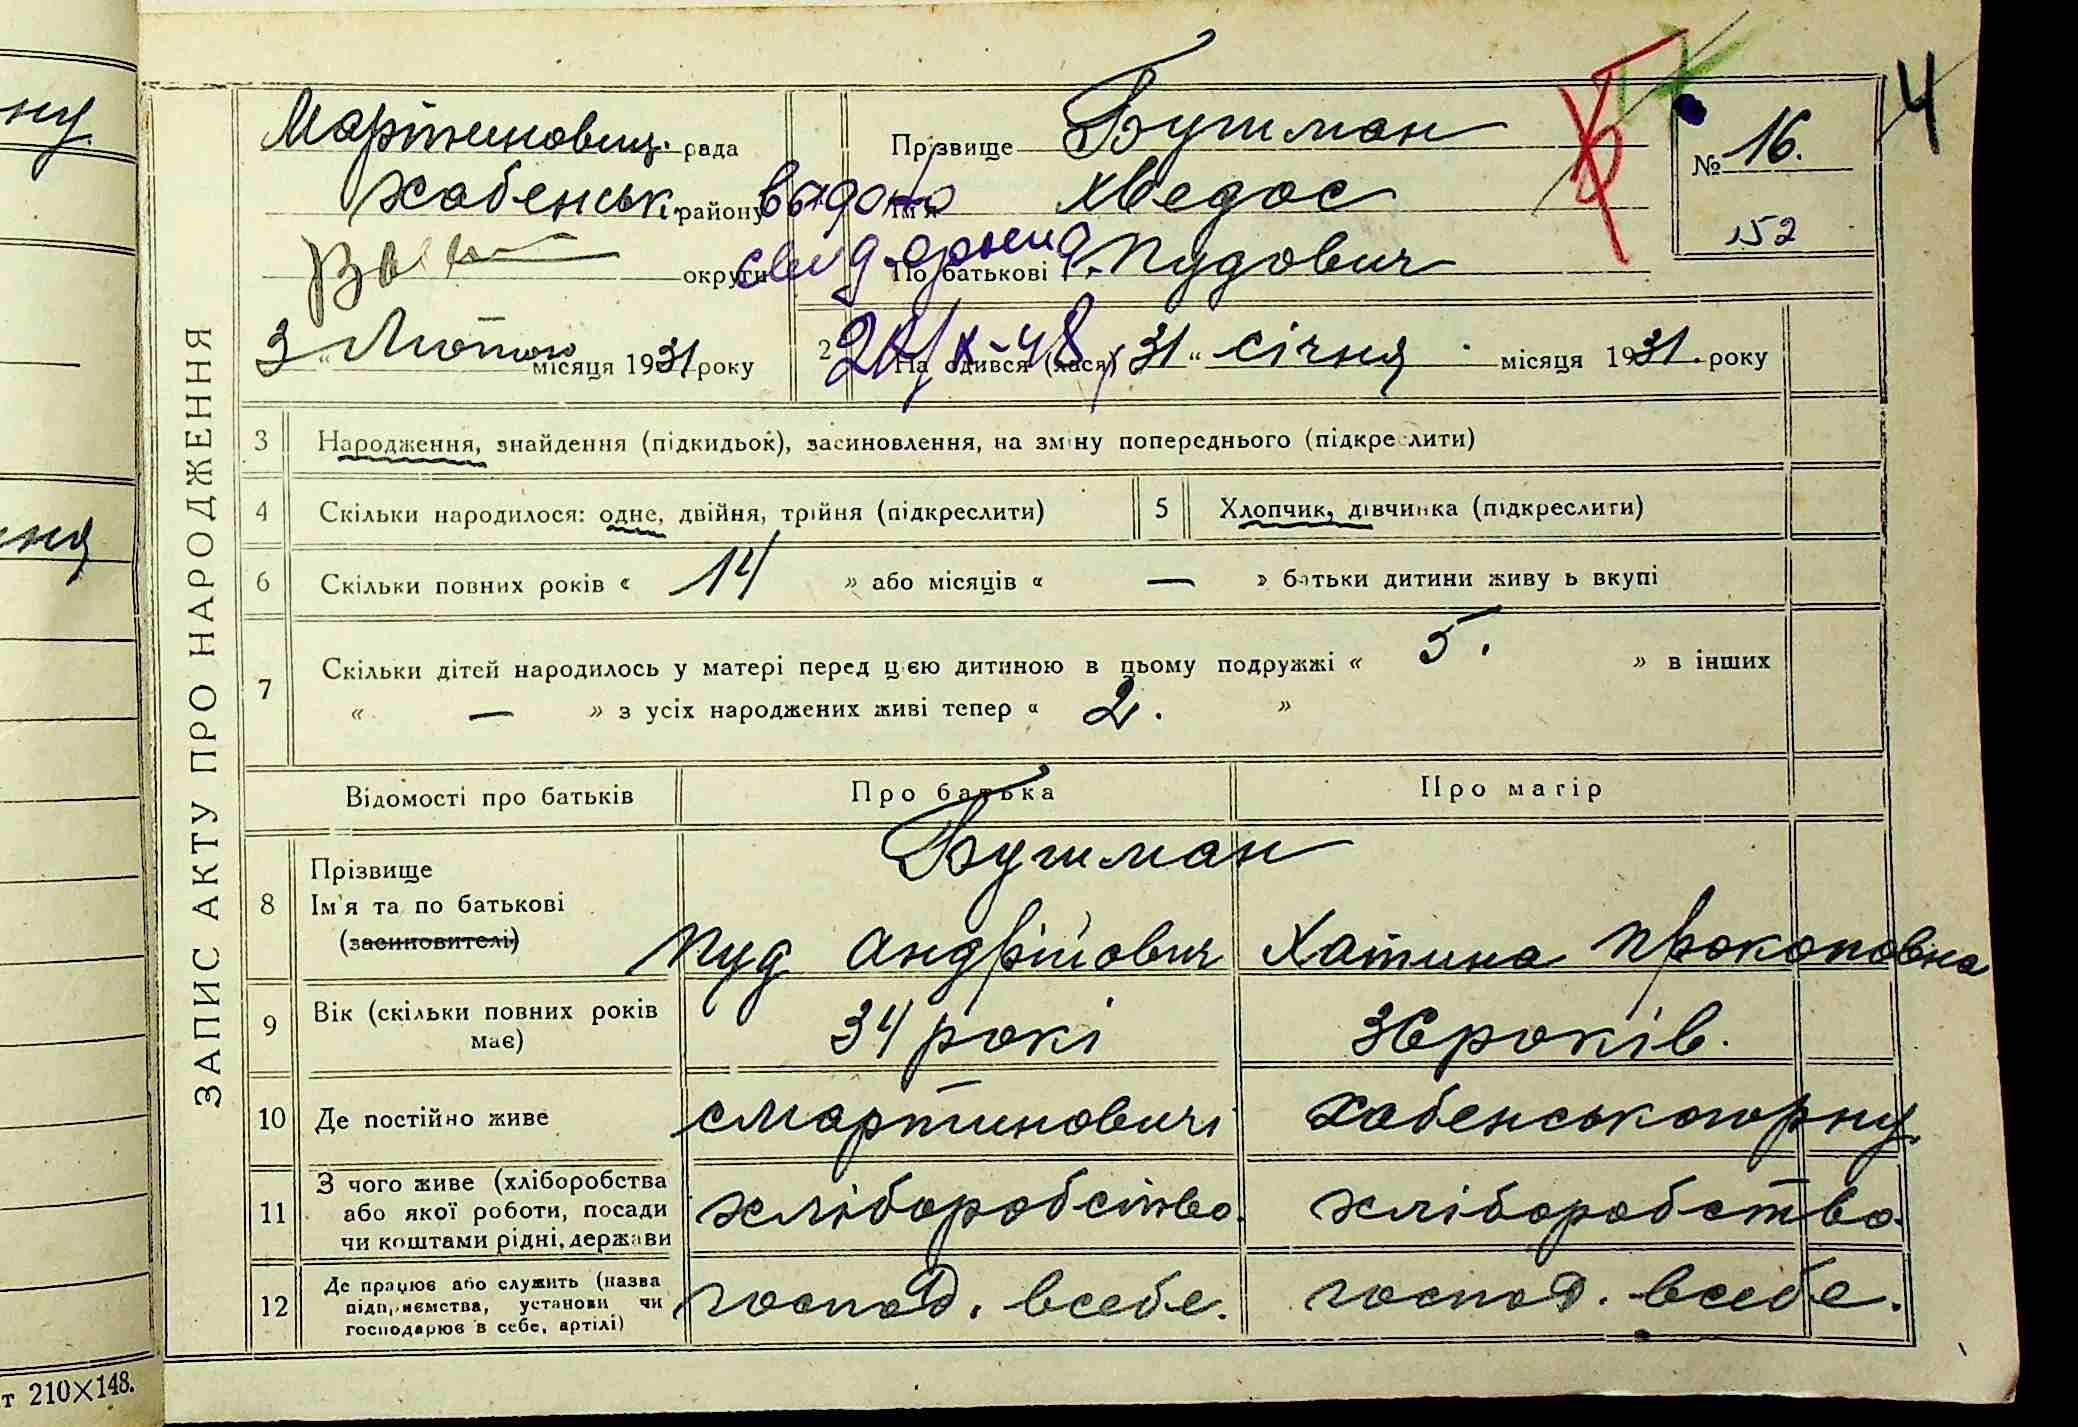 ну
ння
т 210×148.
ЗАПИС АКТУ ПРО НАРОДЖЕННЯ
Мартинович. рада
Хабенськ. району
округи
3 „ Лютого місяця 1931 року
Прізвище Бушман
Ім'я Хведос
По батькові Пудович
видано
свид.
24/X-48
№ 16.
152
4
2 На одився (лася) „31“ січня місяця 1931. року
3 Народження, знайдення (підкидьок), засиновлення, на зміну попереднього (підкреслити)
4 Скільки народилося: одне, двійня, трійня (підкреслити)
5 Хлопчик, дівчинка (підкреслити)
6 Скільки повних років « 14 » або місяців « — » батьки дитини живу ь вкупі
7 Скільки дітей народилось у матері перед цією дитиною в цьому подружжі « 5. » в інших
« — » з усіх народжених живі тепер « 2. »
Відомості про батьків Про батька Про матір
8 Прізвище
Ім'я та по батькові
(засиновителі)
Бушман
Пуд Андрійович Хатина Прокоповна
9 Вік (скільки повних років має) 34 рокі 36 років.
10 Де постійно живе с Мартиновичі Хабенського р ну
11 З чого живе (хліборобства
або якої роботи, посади
чи коштами рідні, держави
хліборобство. хліборобство.
12 Де працює або служить (назва
підприємства, установи чи
господарює в себе, артілі)
господ. всебе. господ. всебе.